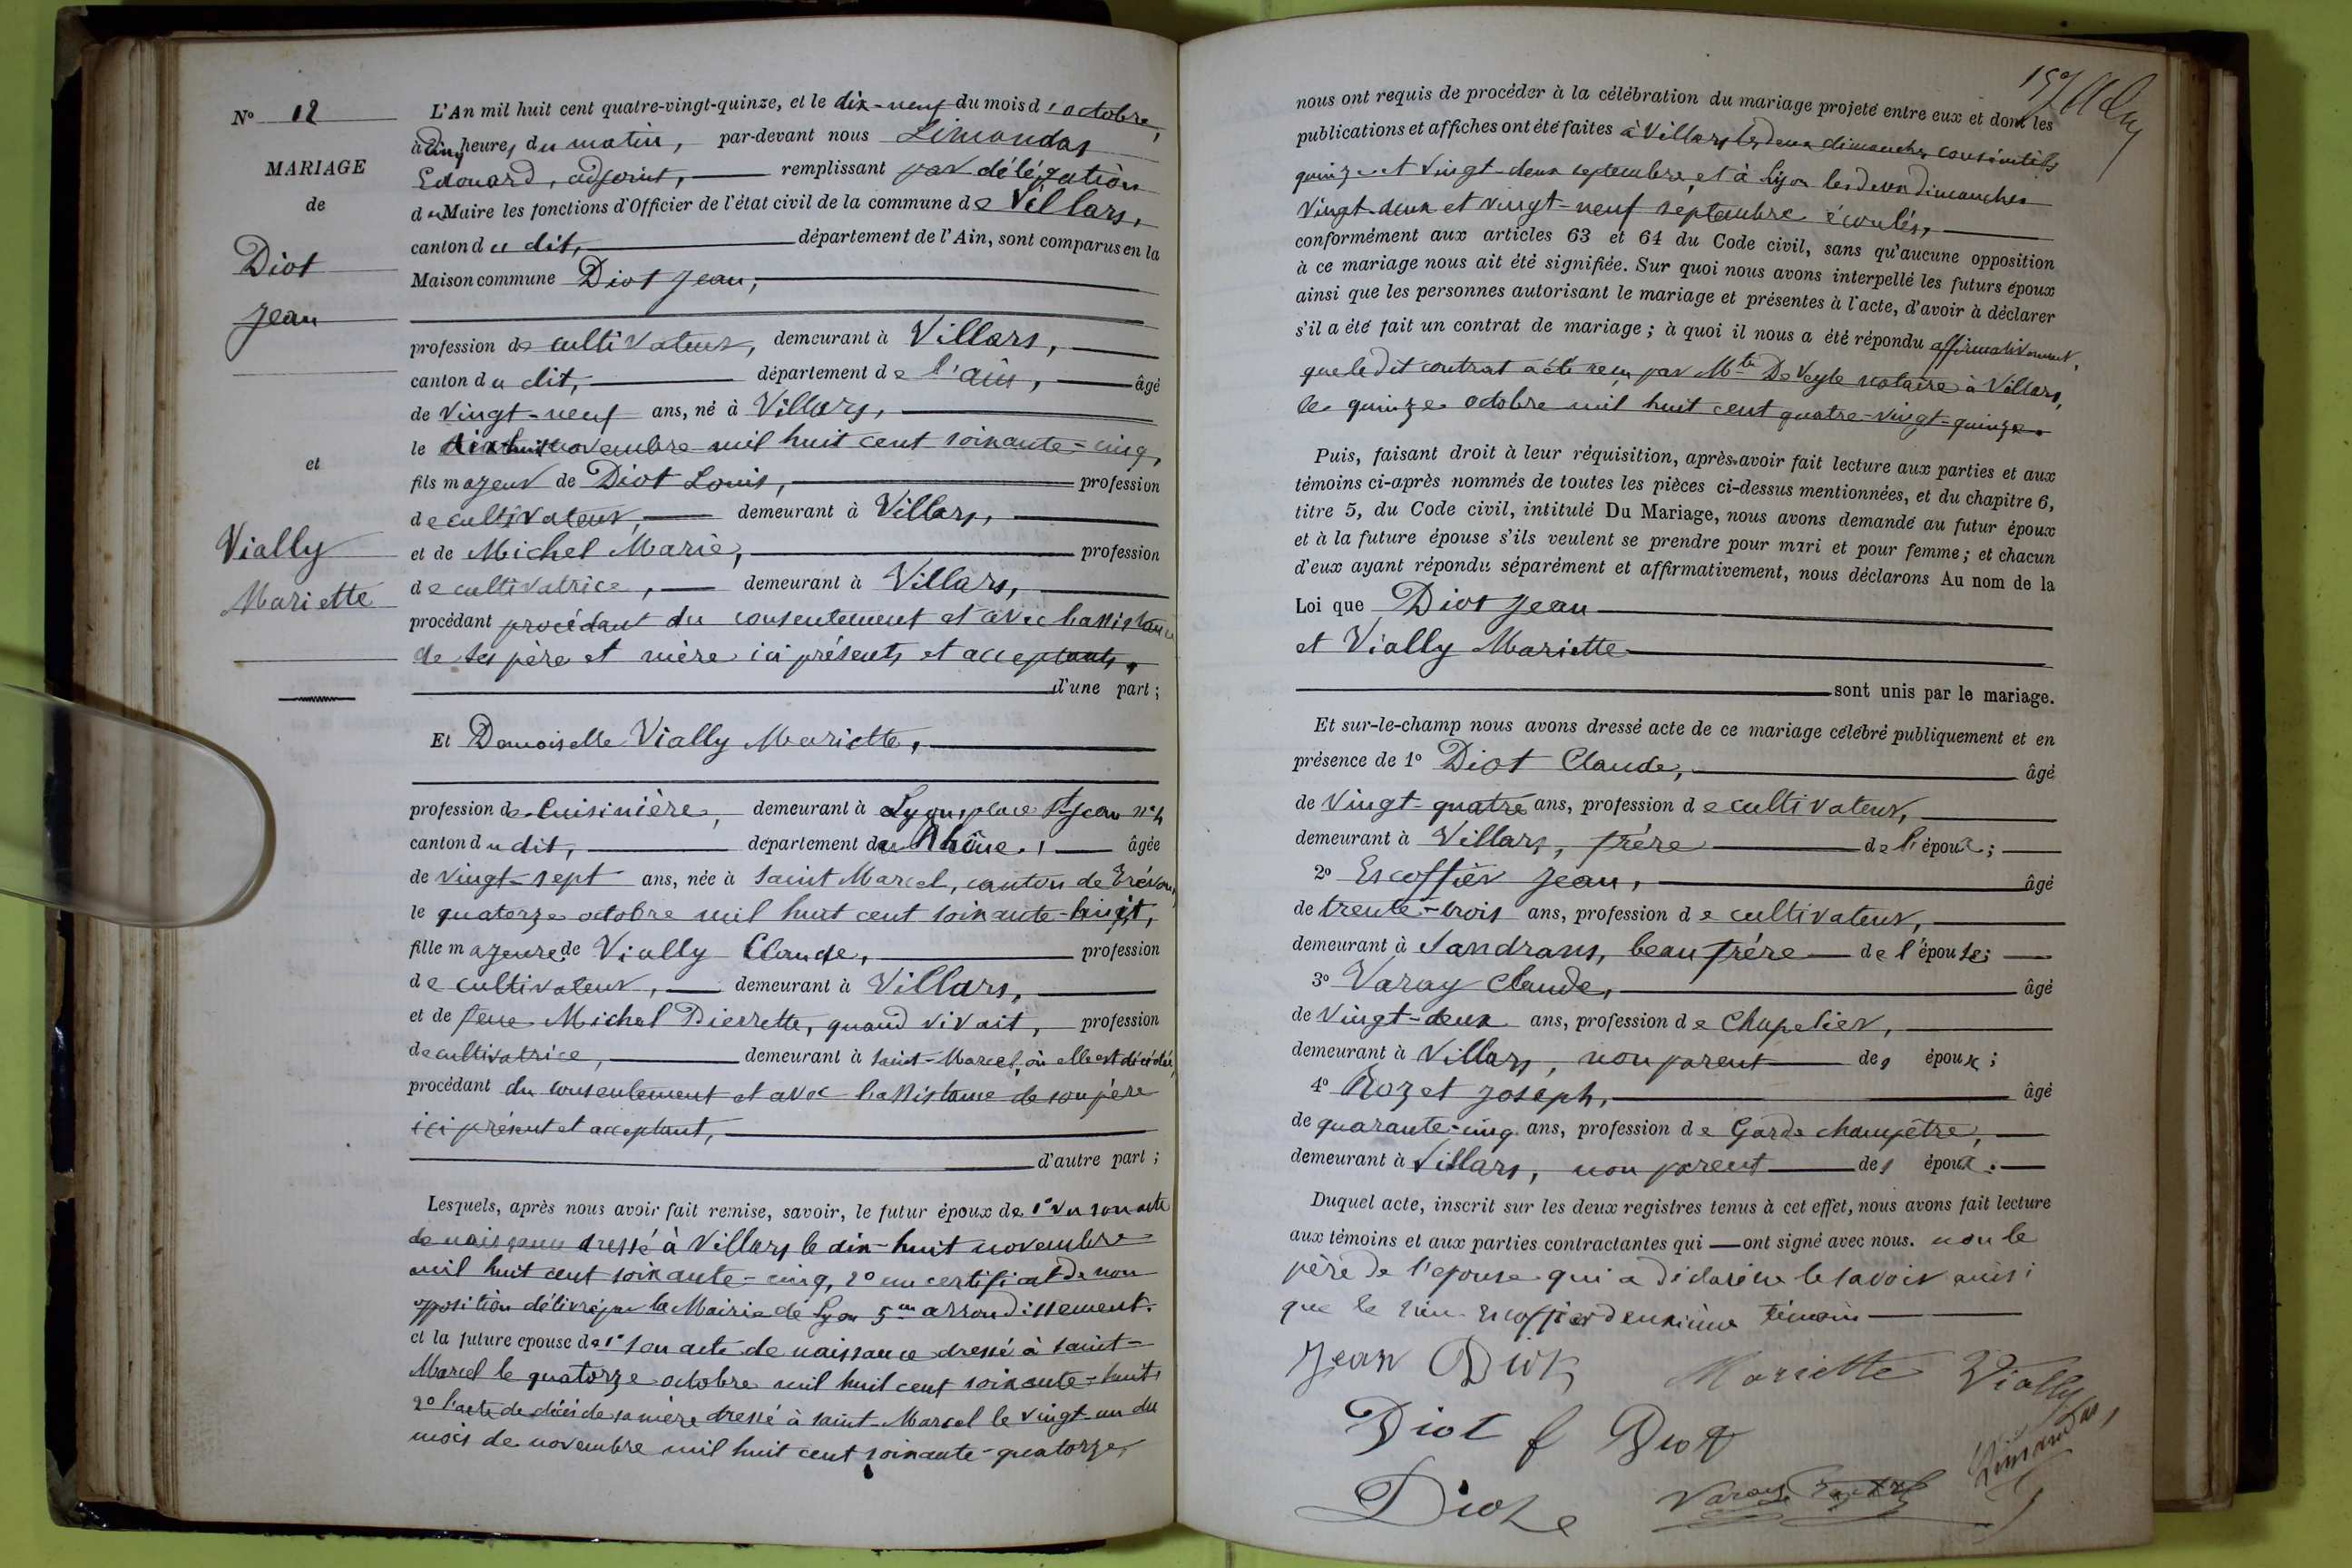 N° 12
MARIAGE
de
Diot
Jean
et
Vially
Mariette
L'An mil huit cent quatre-vingt-quinze, et le dix-neuf du mois d'octobre,
à cinq heures du matin, par-devant nous Limandas
Edouard, adjoint, remplissant par délégation
du Maire les fonctions d'Officier de l'état civil de la commune de Villars,
canton du dit, département de l'Ain, sont comparus en la
Maison commune Diot Jean,
profession de cultivateur, demeurant à Villars,
canton du dit, département de l'ain, âgé
de vingt-neuf ans, né à Villars,
le dix huit novembre mil huit cent soixante-cinq,
fils majeur de Diot Louis, profession
de cultivateur, demeurant à Villars,
et de Michel Marie, profession
de cultivatrice, demeurant à Villars,
procédant procédant du consentement et avec l'assistance
de ses père et mère ici présents et acceptants,
d'une part;
Et Demoiselle Vially Mariette,
profession de Cuisinière, demeurant à Lyon, place St Jean n° 4
canton du dit, département du Rhône, âgée
de vingt-sept ans, née à Saint Marcel, canton de Trévoux,
le quatorze octobre mil huit cent soixante-huit,
fille majeure de Vially Claude, profession
de cultivateur, demeurant à Villars,
et de feue Michel Pierrette, quand vivait, profession
de cultivatrice, demeurant à Saint-Marcel, où elle est décédée,
procédant du consentement et avec l'assistance de son père
ici présent et acceptant,
d'autre part;
Lesquels, après nous avoir fait remise, savoir, le futur époux de 1° Vu son acte
de naissance dressé à Villars le dix-huit novembre
mil huit cent soixante-cinq, 2° un certificat de non
opposition délivré par la Mairie de Lyon 5me arrondissement.
et la future epouse de 1° son acte de naissance dressé à Saint-
Marcel le quatorze octobre mil huit cent soixante-huit,
2° l'acte de décès de sa mère dressé à Saint-Marcel le vingt-un du
mois de novembre mil huit cent soixante-quatorze,
nous ont requis de procéder à la célébration du mariage projeté entre eux et dont les
publications et affiches ont été faites à Villars les deux dimanches consécutifs
quinze et vingt-deux septembre, et à Lyon les deux dimanches
vingt-deux et vingt-neuf septembre écoulés,
conformément aux articles 63 et 64 du Code civil, sans qu'aucune opposition
à ce mariage nous ait été signifiée. Sur quoi nous avons interpellé les futurs époux
ainsi que les personnes autorisant le mariage et présentes à l'acte, d'avoir à déclarer
s'il a été fait un contrat de mariage; à quoi il nous a été répondu affirmativement,
que le dit contrat a été reçu par Mtre De Veyle notaire à Villars,
le quinze octobre mil huit cent quatre-vingt-quinze.
Puis, faisant droit à leur réquisition, après avoir fait lecture aux parties et aux
témoins ci-après nommés de toutes les pièces ci-dessus mentionnées, et du chapitre 6,
titre 5, du Code civil, intitulé Du Mariage, nous avons demandé au futur époux
et à la future épouse s'ils veulent se prendre pour mari et pour femme; et chacun
d'eux ayant répondu séparément et affirmativement, nous déclarons Au nom de la
Loi que Diot Jean
et Vially Mariette
sont unis par le mariage.
Et sur-le-champ nous avons dressé acte de ce mariage célébré publiquement et en
présence de 1° Diot Claude, âgé
de vingt-quatre ans, profession de cultivateur,
demeurant à Villars, frère de l'époux;
2° Escoffier Jean, âgé
de trente-trois ans, profession de cultivateur,
demeurant à Sandrans, beau frère de l'épouse;
3° Varay Claude, âgé
de vingt-deux ans, profession de Chapelier,
demeurant à Villars, non parent des époux;
4° Rozet Joseph, âgé
de quarante-cinq ans, profession de Garde champêtre,
demeurant à Villars, non parent des époux.
Duquel acte, inscrit sur les deux registres tenus à cet effet, nous avons fait lecture
aux témoins et aux parties contractantes qui ont signé avec nous. non le
père de l'epouse qui a déclaré ne le savoir ainsi
que le sieur Escoffier deuxième témoin
Jean Diot Mariette Vially
Diot f Diot
Limandas
Diot Varay Rozet